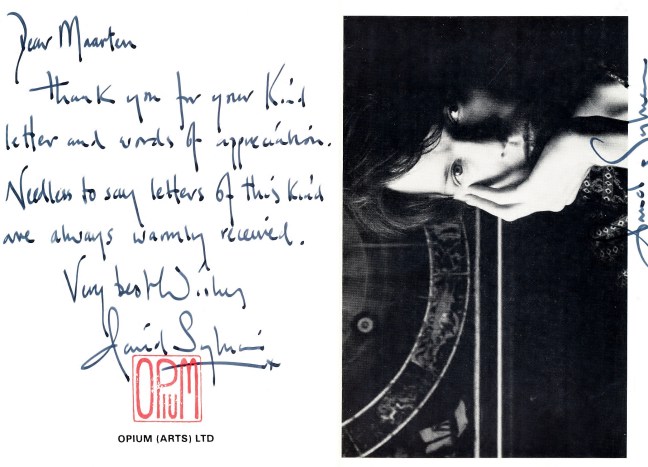 Dear Maarten
Thank you for your kind
letter and words of appreciation.
Needless to say letters of this kind
are always warmly received.
Very best Wishes
David Sylvian x
OPIUM
OPIUM (ARTS) LTD
David Sylvian